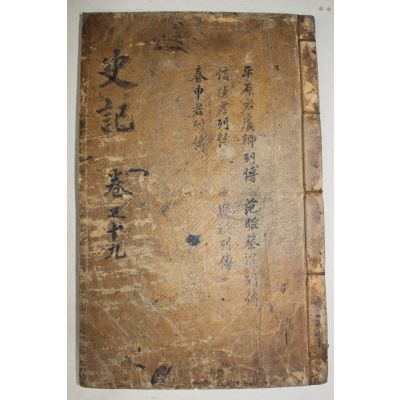 平原君虞卿列傳 范睢蔡澤列傳
信陵君列傳 樂毅列傳
春申君列傳
史記
卷五十九